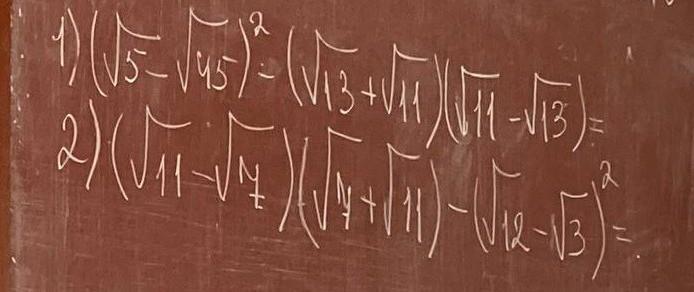 1) (√5 - √45)² - (√13 + √11)(√11 - √13) =
2) (√11 - √7)(√7 + √11) - (√12 - √3)² =